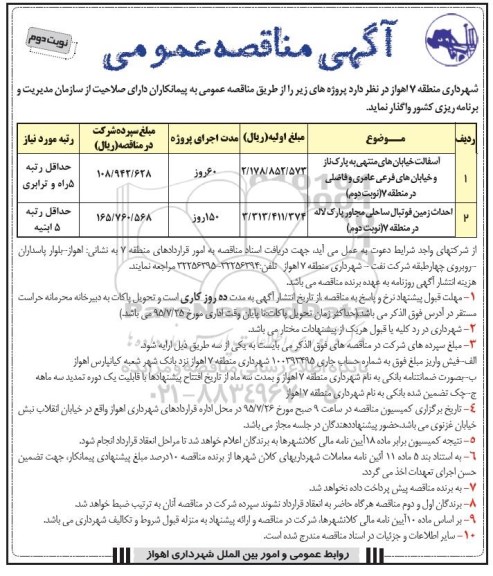 آگهی مناقصه عمومی
نوبت دوم
شهرداری منطقه ۷ اهواز در نظر دارد پروژه های زیر را از طریق مناقصه عمومی به پیمانکاران دارای صلاحیت از سازمان مدیریت و
برنامه ریزی کشور واگذار نماید.
ردیف	موضوع	مبلغ اولیه(ریال)	مدت اجرای پروژه	مبلغ سپرده شرکت در مناقصه(ریال)	رتبه مورد نیاز
۱	آسفالت خیابان های منتهی به پارک ناز و خیابان های فرعی عامری و فاضلی در منطقه ۷(نوبت دوم)	۲/۱۷۸/۸۵۲/۵۷۳	۶۰روز	۱۰۸/۹۴۲/۶۲۸	حداقل رتبه ۵راه و ترابری
۲	احداث زمین فوتبال ساحلی مجاور پارک لاله در منطقه ۷(نوبت دوم)	۳/۳۱۳/۴۱۱/۳۷۴	۱۵۰روز	۱۶۵/۷۶۰/۵۶۸	حداقل رتبه ۵ ابنیه
از شرکتهای واجد شرایط دعوت به عمل می آید، جهت دریافت اسناد مناقصه به امور قراردادهای منطقه ۷ به نشانی: اهواز-بلوار پاسداران
-روبروی چهارطبقه شرکت نفت – شهرداری منطقه ۷ اهواز تلفن:۳۲۲۵۶۳۹۴-۳۲۲۵۶۳۹۵ مراجعه نمایند.
هزینه انتشار آگهی روزنامه به عهده برنده مناقصه می باشد.
۱- مهلت قبول پیشنهاد نرخ و پاسخ به مناقصه از تاریخ انتشار آگهی به مدت ده روز کاری است و تحویل پاکات به دبیرخانه محرمانه حراست
مستقر در آدرس فوق الذکر می باشد.(حداکثر زمان تحویل پاکات تا پایان وقت اداری مورخ ۹۵/۷/۲۵ می باشد.)
۲- شهرداری در رد کلیه یا قبول هریک از پیشنهادات مختار می باشد.
۳- مبلغ سپرده های شرکت در مناقصه های فوق الذکر می بایست به یکی از سه طریق ذیل ارایه شود.
الف-فیش واریز مبلغ فوق به شماره حساب جاری ۱۰۰۳۹۳۴۹۵ شهرداری منطقه ۷ اهواز نزد بانک شهر شعبه کیانپارس اهواز
ب-بصورت ضمانتنامه بانکی به نام شهرداری منطقه ۷ اهواز و بمدت سه ماه از تاریخ افتتاح پیشنهادها با قابلیت یک دوره تمدید سه ماهه
ج-چک تضمین شده بانکی به نام شهرداری منطقه ۷ اهواز
۴- تاریخ برگزاری کمیسیون مناقصه در ساعت ۹ صبح مورخ ۹۵/۷/۲۶ در محل اداره قراردادهای شهرداری اهواز واقع در خیابان انقلاب نبش
خیابان غزنوی می باشد.حضور پیشنهاددهندگان در جلسه مجاز می باشد.
۵- نتیجه کمیسیون برابر ماده ۱۸آیین نامه مالی کلانشهرها به برندگان اعلام خواهد شد تا مراحل انعقاد قرارداد انجام شود.
۶- به استناد بند ۵ ماده ۱۱ آئین نامه معاملات شهرداریهای کلان شهرها از برنده مناقصه ۱۰درصد مبلغ پیشنهادی پیمانکار، جهت تضمین
حسن اجرای تعهدات اخذ می گردد.
۷- به برنده مناقصه پیش پرداخت داده نخواهد شد.
۸- برندگان اول و دوم مناقصه هرگاه حاضر به انعقاد قرارداد نشوند سپرده شرکت در مناقصه آنان به ترتیب ضبط خواهد شد.
۹- بر اساس ماده ۱۰آیین نامه مالی کلانشهرها، شرکت در مناقصه و ارائه پیشنهاد به منزله قبول شروط و تکالیف شهرداری می باشد.
۱۰- سایر اطلاعات و جزئیات در اسناد مناقصه مندرج شده است.
روابط عمومی و امور بین الملل شهرداری اهواز
۰۲۱-۸۸۳۴۹۶۷۰